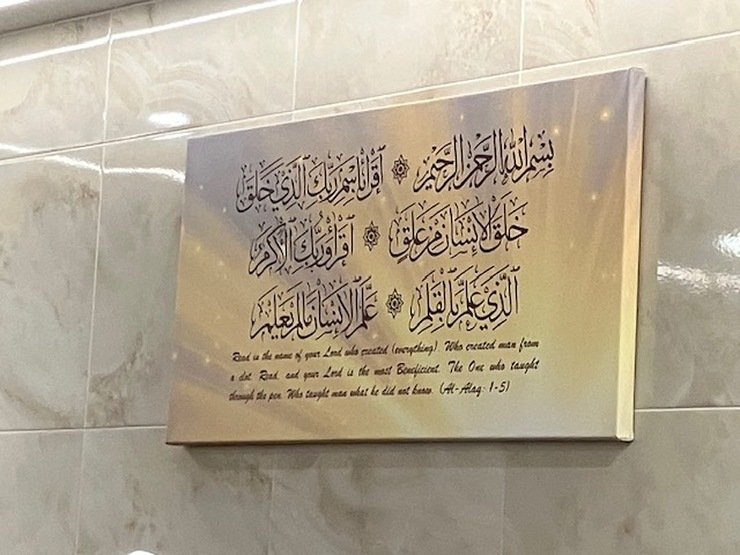 بِسْمِ اللهِ الرَّحْمٰنِ الرَّحِيْمِ ۞ اِقْرَأْ بِاسْمِ رَبِّكَ الَّذِيْ خَلَقَ
خَلَقَ الْاِنْسَانَ مِنْ عَلَقٍ ۞ اِقْرَأْ وَرَبُّكَ الْاَكْرَمُ
الَّذِيْ عَلَّمَ بِالْقَلَمِ ۞ عَلَّمَ الْاِنْسَانَ مَا لَمْ يَعْلَمْ
Read in the name of your Lord who created (everything). Who created man from
a clot. Read, and your Lord is the most Beneficient. The One who taught
through the pen. Who taught man what he did not know. (Al-Alaq: 1-5)